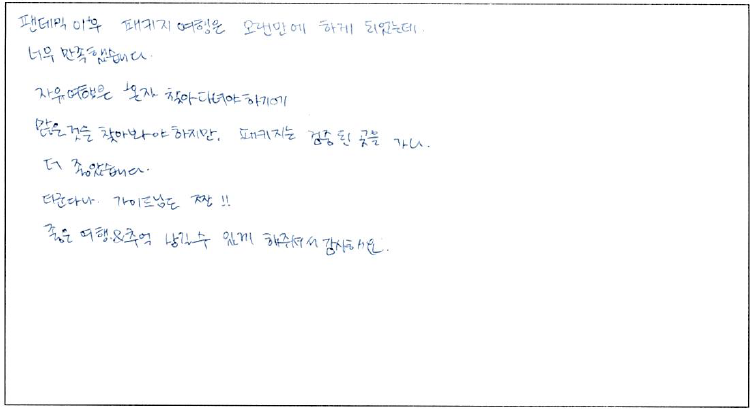 팬데믹 이후 패키지 여행은 오랜만에 하게 되었는데.
너무 만족했습니다.
자유여행은 혼자 찾아다녀야 하기에
많은것을 찾아봐야 하지만, 패키지는 검증된 곳을 가니.
더 좋았습니다.
더군다나 가이드님도 짱!!
좋은 여행&추억 남길수 있게 해주셔서 감사해요.